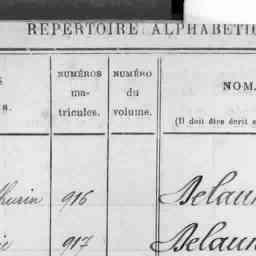 RÉPERTOIRE ALPHABÉTI
NUMÉROS ma- tricules.
NUMÉRO du volume.
NOM
(Il doit être écrit
916 Delaun
917 Delaun